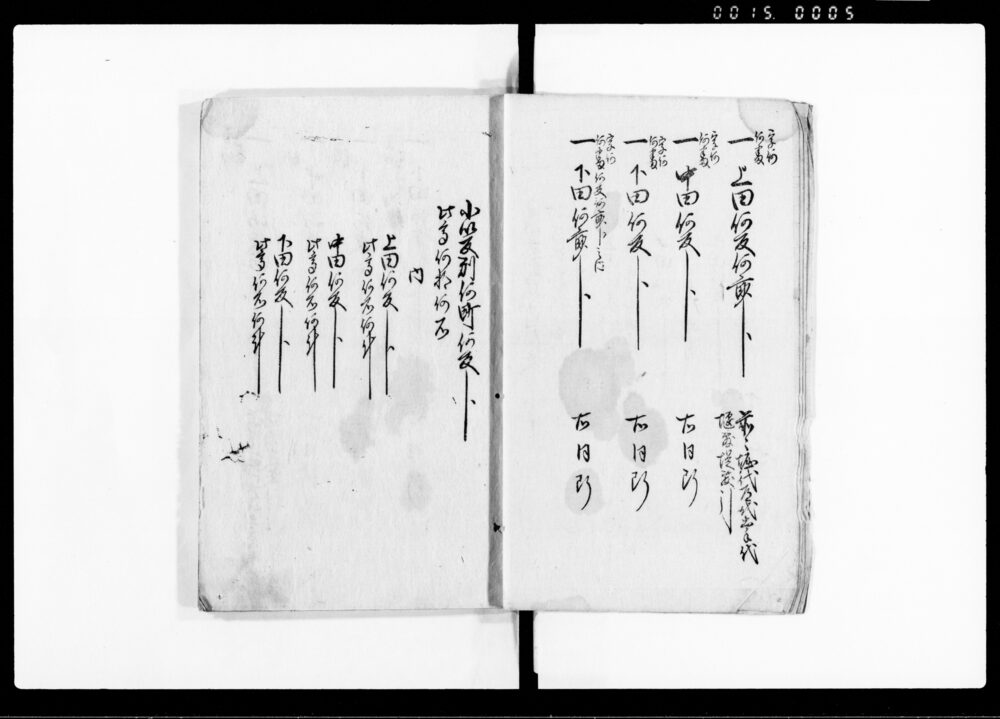 0015.0005
字何
何番
一上田何反何畝ト
字何
何番
一中田何反ト
右同断
字何
何番
一下田何反ト
右同断
字何
何番何反何畝ト之内
一下田何畝ト
右同断
小以反別何町何反ト
此高何拾何石
内
上田何反ト
此高何石何斗
中田何反ト
此高何石何斗
下田何反ト
此高何石何斗